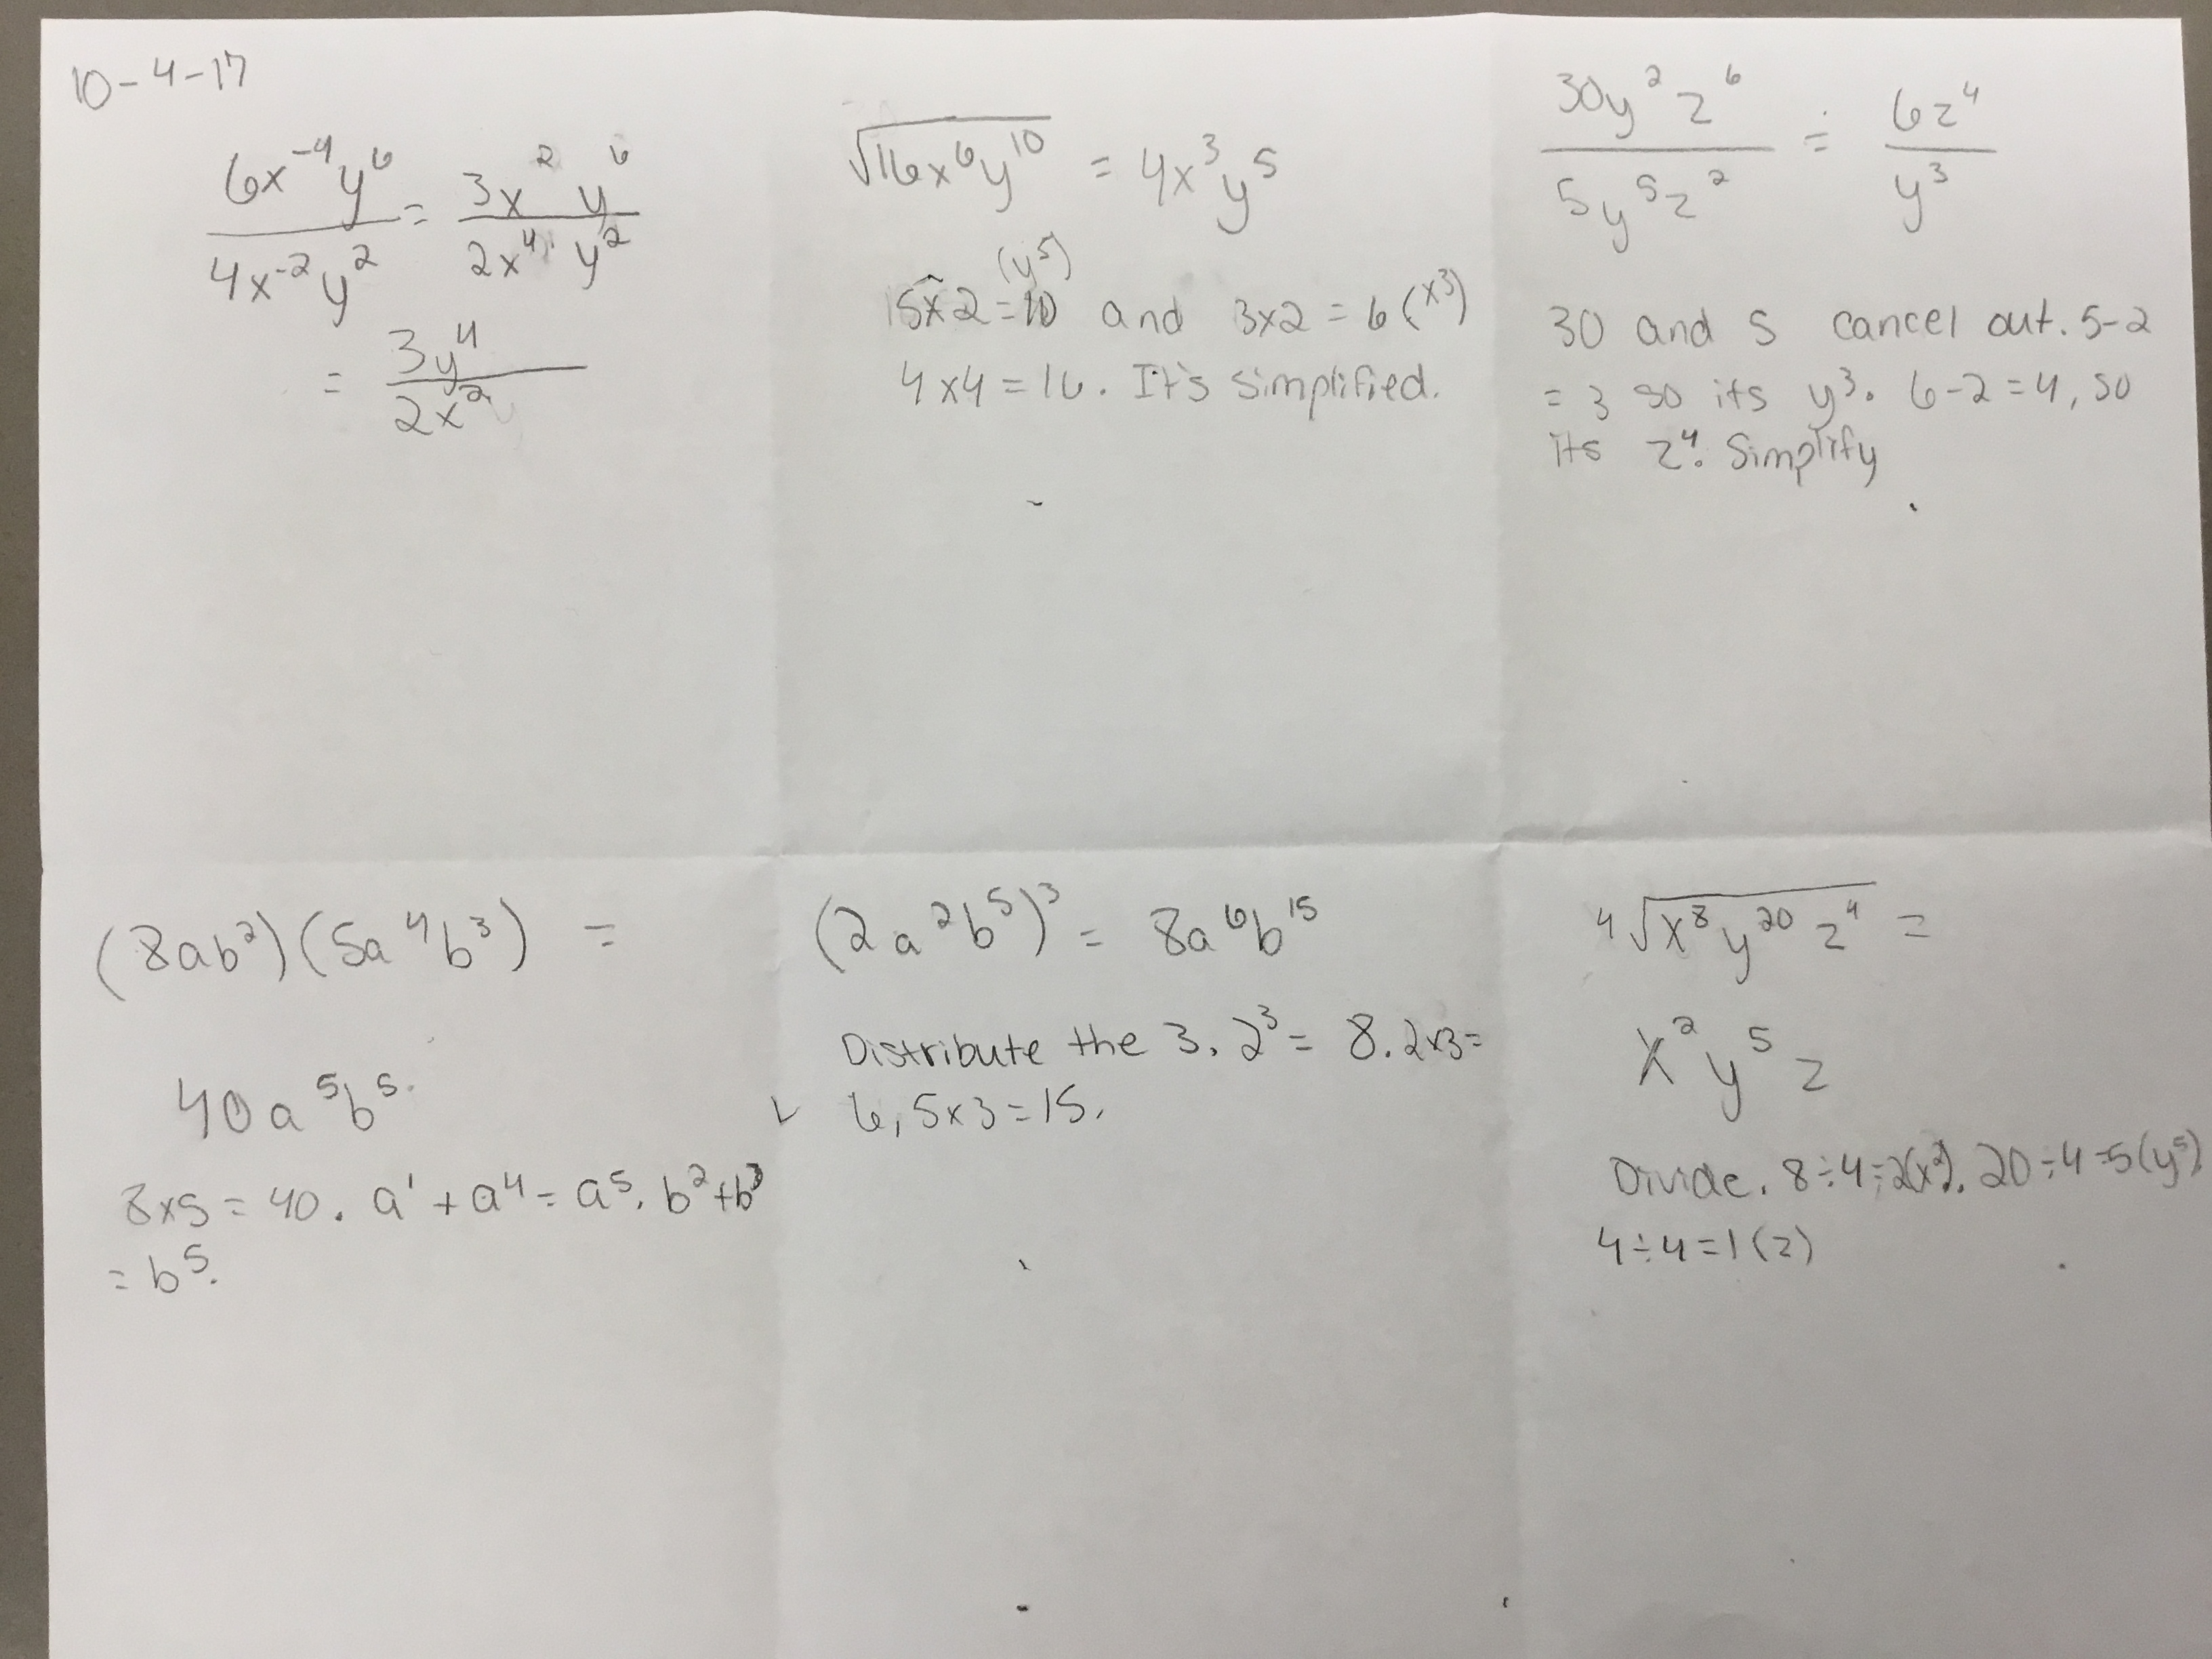 10-4-17
6x⁻⁴y⁶ / 4x⁻²y² = 3x²y⁶ / 2x⁴y²
= 3y⁴ / 2x²
√16x⁶y¹⁰ = 4x³y⁵
(y⁵)
5x2=10 and 3x2=6 (x³)
4x4=16. It's simplified.
30y²z⁶ / 5y⁵z² = 6z⁴ / y³
30 and 5 cancel out. 5-2
= 3 so its y³. 6-2=4, so
its z⁴. Simplify
(8ab²)(5a⁴b³) =
40a⁵b⁵.
8x5=40. a¹+a⁴=a⁵. b²+b³
=b⁵.
(2a²b⁵)³ = 8a⁶b¹⁵
Distribute the 3. 2³=8. 2x3=
6, 5x3=15.
⁴√x⁸y²⁰z⁴ =
x²y⁵z
Divide. 8÷4=2(x²). 20÷4=5(y⁵).
4÷4=1(z)